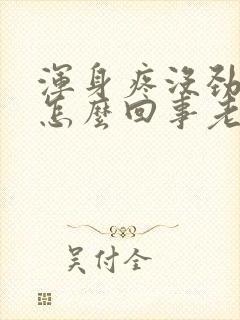 渾身疼沒勁
怎麼回事老
吴付全